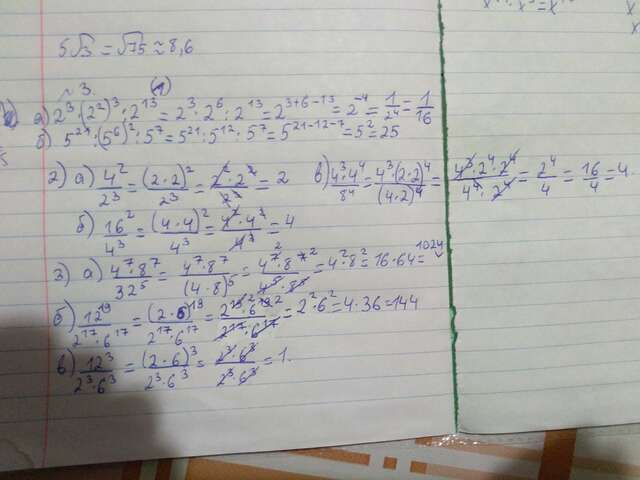 5√3 = √75 ≈ 8,6
~3.
(1)
а) 2³·(2²)³:2¹³=2³·2⁶:2¹³=2³⁺⁶⁻¹³=2⁻⁴=1/2⁴=1/16
б) 5²¹:(5⁶)²:5⁷=5²¹:5¹²:5⁷=5²¹⁻¹²⁻⁷=5²=25
2) а) 4²/2³=(2·2)²/2³=2²·2²/2³=2 в) 4³·4⁴/8⁴=4³·(2·2)⁴/(4·2)⁴=4³·2⁴·2⁴/4⁴·2⁴=2⁴/4=16/4=4.
б) 16²/4³=(4·4)²/4³=4²·4²/4³=4
3) а) 4⁷·8⁷/32⁵=4⁷·8⁷/(4·8)⁵=4⁷·8⁷/4⁵·8⁵=4²·8²=16·64=1024
б) 12¹⁹/2¹⁷·6¹⁷=(2·6)¹⁹/2¹⁷·6¹⁷=2¹⁹·6¹⁹/2¹⁷·6¹⁷=2²·6²=4·36=144
в) 12³/2³·6³=(2·6)³/2³·6³=2³·6³/2³·6³=1.